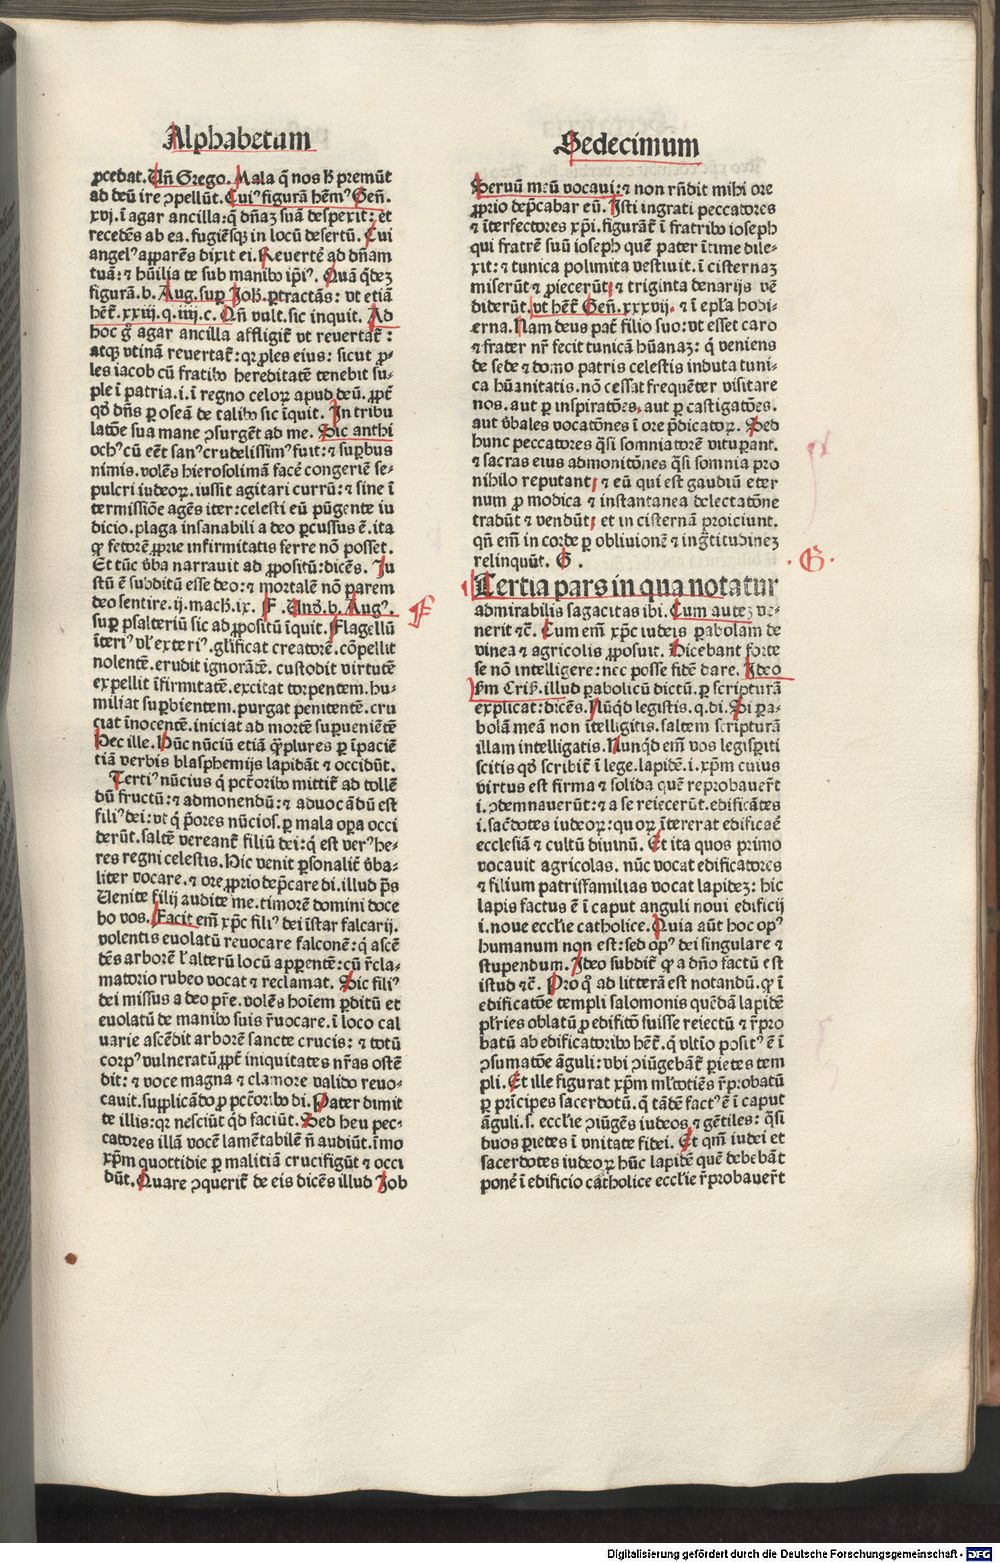 Alphabetum
ꝓcedat. Un̄ Grego. Mala q̄ nos ħ premūt
ad deū ire ↄpellūt. Cuiꝰ figurā hēmꝰ Gen̄.
xvj. ī agar ancilla: q̄ dn̄aꝫ suā despexit: et
recedēs ab ea. fugiēsqꝫ in locū desertū. Cui
angelꝰ apparēs dixit ei. Revertē ad dn̄am
tuā: ⁊ hūilia te sub manibꝰ ip̄iꝰ. Quā qͥdeꝫ
figurā. b. Aug. suꝑ Joh̄. ꝑtractās: vt etiā
hēt̄. xxiij. q. iiij. c. Qn̄ vult. sic inquit. Ad
hoc gͦ agar ancilla affligit̄ vt revertat̄:
atqꝫ vtinā revertat̄: qꝛ ꝓles eius: sicut ꝓ-
les iacob cū fratibꝰ hereditatē tenebit su-
ple ī patria. i. ī regno celoꝝ apud deū. ꝓpt̄
qḋ dn̄s ꝑ oseā de talibꝰ sic īquit. In tribu
latōe sua mane ↄsurgēt ad me. Sic anthi
ochꝰ cū eēt sanꝰ crudelissimꝰ fuit: ⁊ suꝑbus
nimis. volēs hierosolimā facē congeriē se-
pulcri iudeoꝝ. iussit agitari currū: ⁊ sine ī
termissiōe agēs iter: celesti eū pūgente iu
dicio. plaga insanabili a deo ꝑcussus ē. ita
ꝙ fetorē ꝓprie infirmitatis ferre nō posset.
Et tūc v̄ba narravit ad ꝓpositū: dicēs. Ju
stū ē subditū esse deo: ⁊ mortalē nō parem
deo sentire. ij. mach̄. ix. F . Unḋ. b. Augꝰ.
F
suꝑ psalteriū sic ad ꝓpositū īquit. Flagellū
īteriꝰ vl̓ exteriꝰ. gl̓ificat creatorē. cōpellit
nolentē. erudit ignorātē. custodit virtutē
expellit īfirmitatē. excitat torpentem. hu-
miliat suꝑbientem. purgat penitentē. cru
ciat īnocentē. iniciat ad mortē suꝑveniētē
Hec ille. Hūc nūciū etiā qͣ̄plures ꝑ īpaciē
tiā verbis blasphemijs lapidāt ⁊ occidūt.
Tertiꝰ nūcius q̄ pctōribꝰ mittit̄ ad tollē
dū fructū: ⁊ admonendū: ⁊ advocādū est
filiꝰ dei: vt q̄ pͥores nūcios. ꝑ mala oꝑa occi
derūt. saltē vereant̄ filiū dei: q̄ est verꝰ he-
res regni celestis. Hic venit ꝑsonalit̄ v̄ba-
liter vocare. ⁊ ore ꝓprio dep̄care di. illud p̄s
Uenite filij audite me. timorē domini doce
bo vos. Facit em̄ xp̄c filiꝰ dei īstar falcarij.
volentis evolatū revocare falconē: q̄ ascē
dēs arborē l̓ alterū locū apꝑentē: cū r̄cla-
matorio rubeo vocat ⁊ reclamat. Sic filiꝰ
dei missus a deo pr̄e. volēs hoīem ꝑditū et
evolatū de manibꝰ suis r̄vocare. ī loco cal
varie ascēdit arborē sancte crucis: ⁊ totū
corpꝰ vulneratū ꝓpt̄ iniquitates nr̄as ostē
dit: ⁊ voce magna ⁊ clamore valido revo-
cavit. supplicādo ꝓ pctōribꝰ di. Pater dimit
te illis: qꝛ nesciūt qd̄ faciūt. Sed heu pec-
catores illā vocē lamētabilē n̄ audiūt. īmo
xp̄m quottidie ꝑ malitiā crucifigūt ⁊ occi
dūt. Quare ↄquerit̄ de eis dicēs illud Job
Sedecimum
Servū meū vocavi: ⁊ non rn̄dit mihi ore
ꝓprio dep̄cabar eū. Isti ingrati peccatores
⁊ īterfectores xp̄i. figurāt̄ ī fratribꝰ ioseph
qui fratrē suū ioseph quē pater ītime dile-
xit: ⁊ tunica polimita vestivit. ī cisternaꝫ
miserūt ⁊ ꝓiecerūt: ⁊ triginta denarijs vē
diderūt. vt hēt̄ Gen̄. xxxvij. ⁊ ī ep̄la hodi-
erna. Nam deus pat̄ filio suo: vt esset caro
⁊ frater nr̄ fecit tunicā hūanaꝫ: q̄ veniens
de sede ⁊ domo patris celestis induta tuni-
ca hūanitatis. nō cessat frequēter visitare
nos. aut ꝑ inspiratōes, aut ꝑ castigatōes.
aut v̄bales vocatōnes ī ore p̄dicatoꝝ. Sed
hunc peccatores qͣsi somniatorē vituꝑant.
⁊ sacras eius admonitōnes qͣsi somnia pro
nihilo reputant: ⁊ eū qui est gaudiū eter
num ꝓ modica ⁊ instantanea delectatōne
tradūt ⁊ vendūt: et in cisternā proiciunt.
qn̄ em̄ in corde ꝑ oblivionē ⁊ ingͣtitudineꝫ
relinquūt. G .
.G.
Tertia pars in qua notatur
admirabilis sagacitas ibi. Cum auteꝫ ve-
nerit ⁊c̄. Cum em̄ xp̄c iudeis ꝑabolam de
vinea ⁊ agricolis ꝓposuit. Dicebant forte
se nō intelligere: nec posse fidē dare. Ideo
ẜm Cris̄. illud ꝑabolicū dictū. ꝑ scripturā
explicat: dicēs. Nūqͥd legistis. q. di. Si ꝑa-
bolā meā non ītelligitis. saltem scripturā
illam intelligatis. Nunqͥd em̄ vos legisꝑiti
scitis qḋ scribit̄ ī lege. lapidē. i. xp̄m cuius
virtus est firma ⁊ solida quē reprobaver̄t
i. ↄdemnaverūt: ⁊ a se reiecerūt. edificātes
i. sac̄dotes iudeoꝝ: quoꝝ ītererat edificaē
ecclesiā ⁊ cultū divinū. Et ita quos primo
vocavit agricolas. nūc vocat edificatores
⁊ filium patrisfamilias vocat lapideꝫ: hic
lapis factus ē ī caput anguli novi edificij
i. nove eccl̓ie catholice. Quia aūt hoc opꝰ
humanum non est: sed opꝰ dei singulare ⁊
stupendum. Ideo subdit̄ ꝙ a dn̄o factū est
istud ⁊c̄. Pro qͦ ad litterā est notandū. ꝙ ī
edificatōe templi salomonis quēdā lapidē
pl̓ries oblatū ꝓ edificͦ fuisse reiectū ⁊ r̄pro
batū ab edificatoribꝰ hēt̄. q̄ vltīo positꝰ ē ī
ↄsumatōe āguli: vbi ↄiūgebāt̄ ꝑietes tem
pli. Et ille figurat xp̄m ml̓totiēs r̄probatū
ꝑ pͥncipes sacerdotū. q̄ tādē factꝰ ē ī caput
āguli. s. eccl̓ie ↄiūgēs iudeos ⁊ gētiles: qͣsi
duos ꝑietes ī vnitate fidei. Et qm̄ iudei et
sacerdotes iudeoꝝ hūc lapidē quē debebāt
ponē ī edificio catholice eccl̓ie r̄probaver̄t
Digitalisierung gefördert durch die Deutsche Forschungsgemeinschaft - DFG